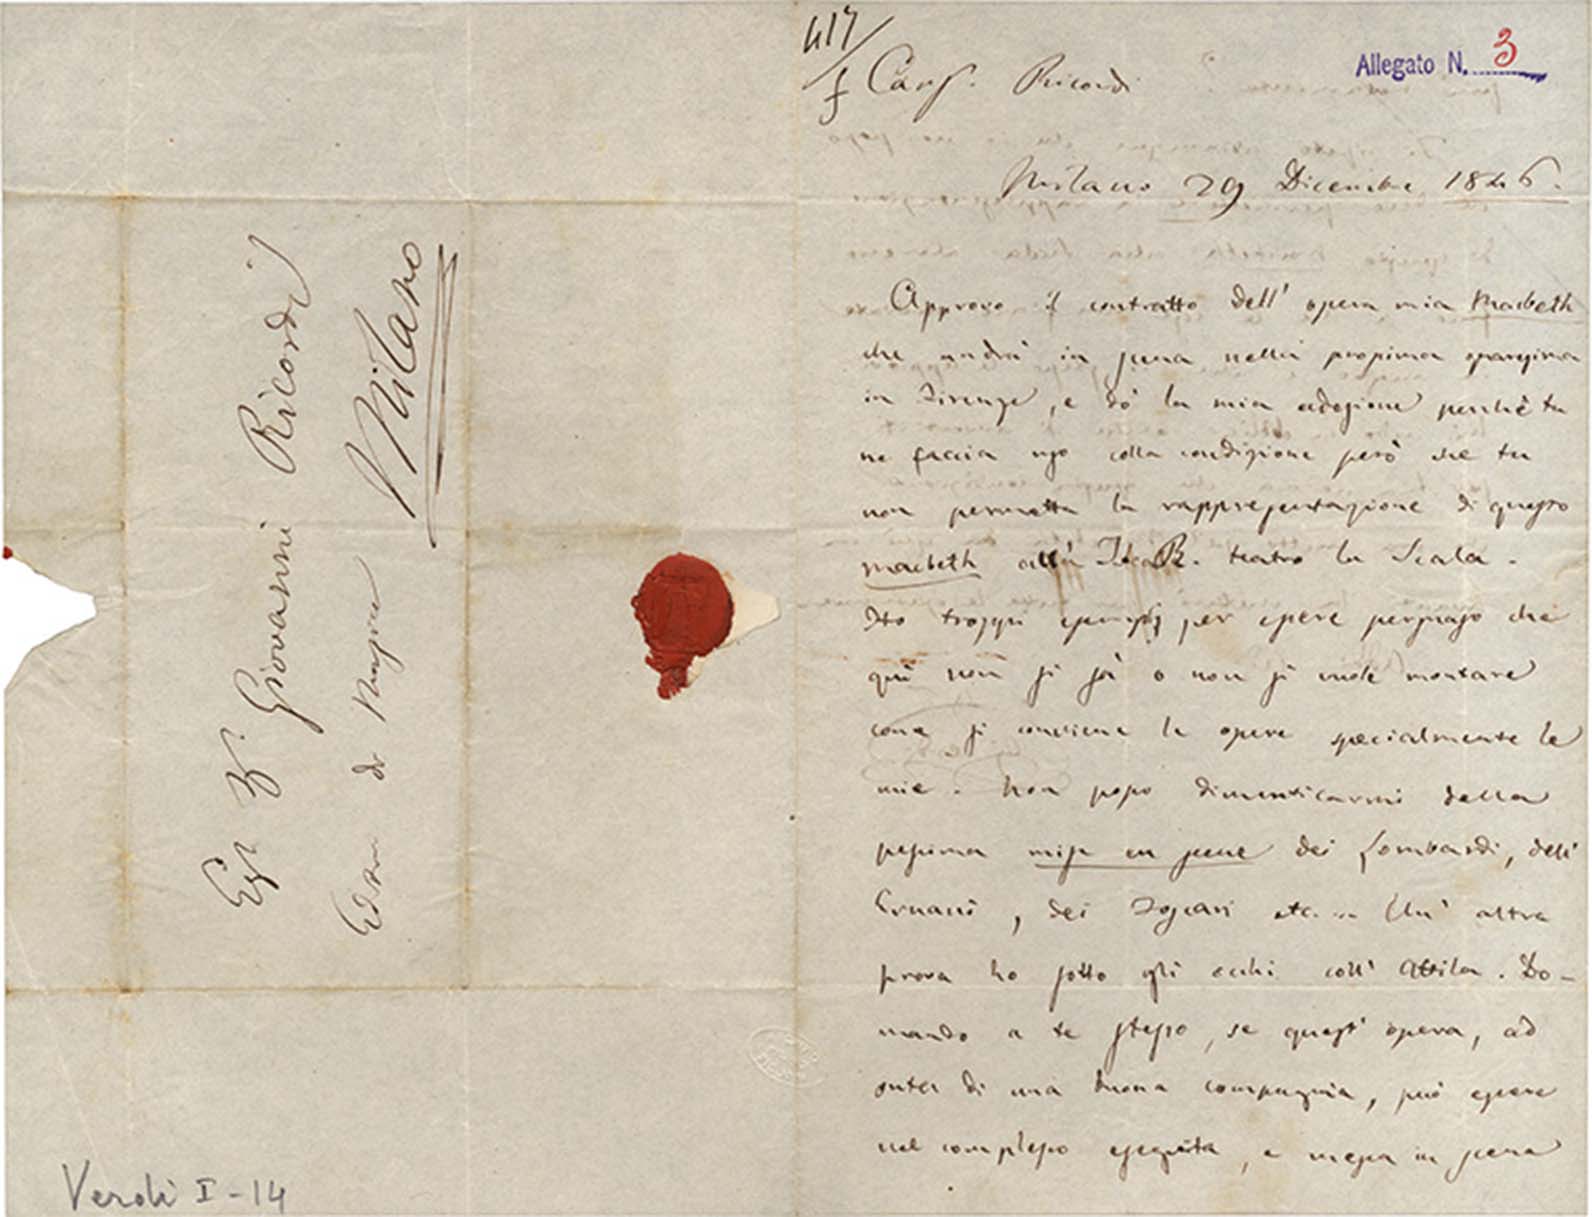 Egr. Sr. Giovanni Ricordi
Edre. di Musica
Milano
Verdi I - 14
417
Allegato N. 3
Cariss. Ricordi
Milano 29 Dicembre 1846.
Approvo il contratto dell' opera mia Macbeth
che andrà in scena nella prossima quaresima
in Firenze, e dò la mia adesione perchè tu
ne faccia uso colla condizione però che tu
non permetta la rappresentazione di questo
Macbeth all' I. R. teatro la Scala.
Ho troppi esempj per essere persuaso che
quì non si sà o non si vuole montare
come si conviene le opere specialmente le
mie. Non posso dimenticarmi della
pessima mise en scene dei Lombardi, dell'
Ernani, dei Foscari etc... Un' altro
prova ho sotto gli occhi coll' Attila. Do-
mando a te stesso, se quest' opera, ad
onta di una buona compagnia, può essere
nel complesso eseguita, e messa in scena